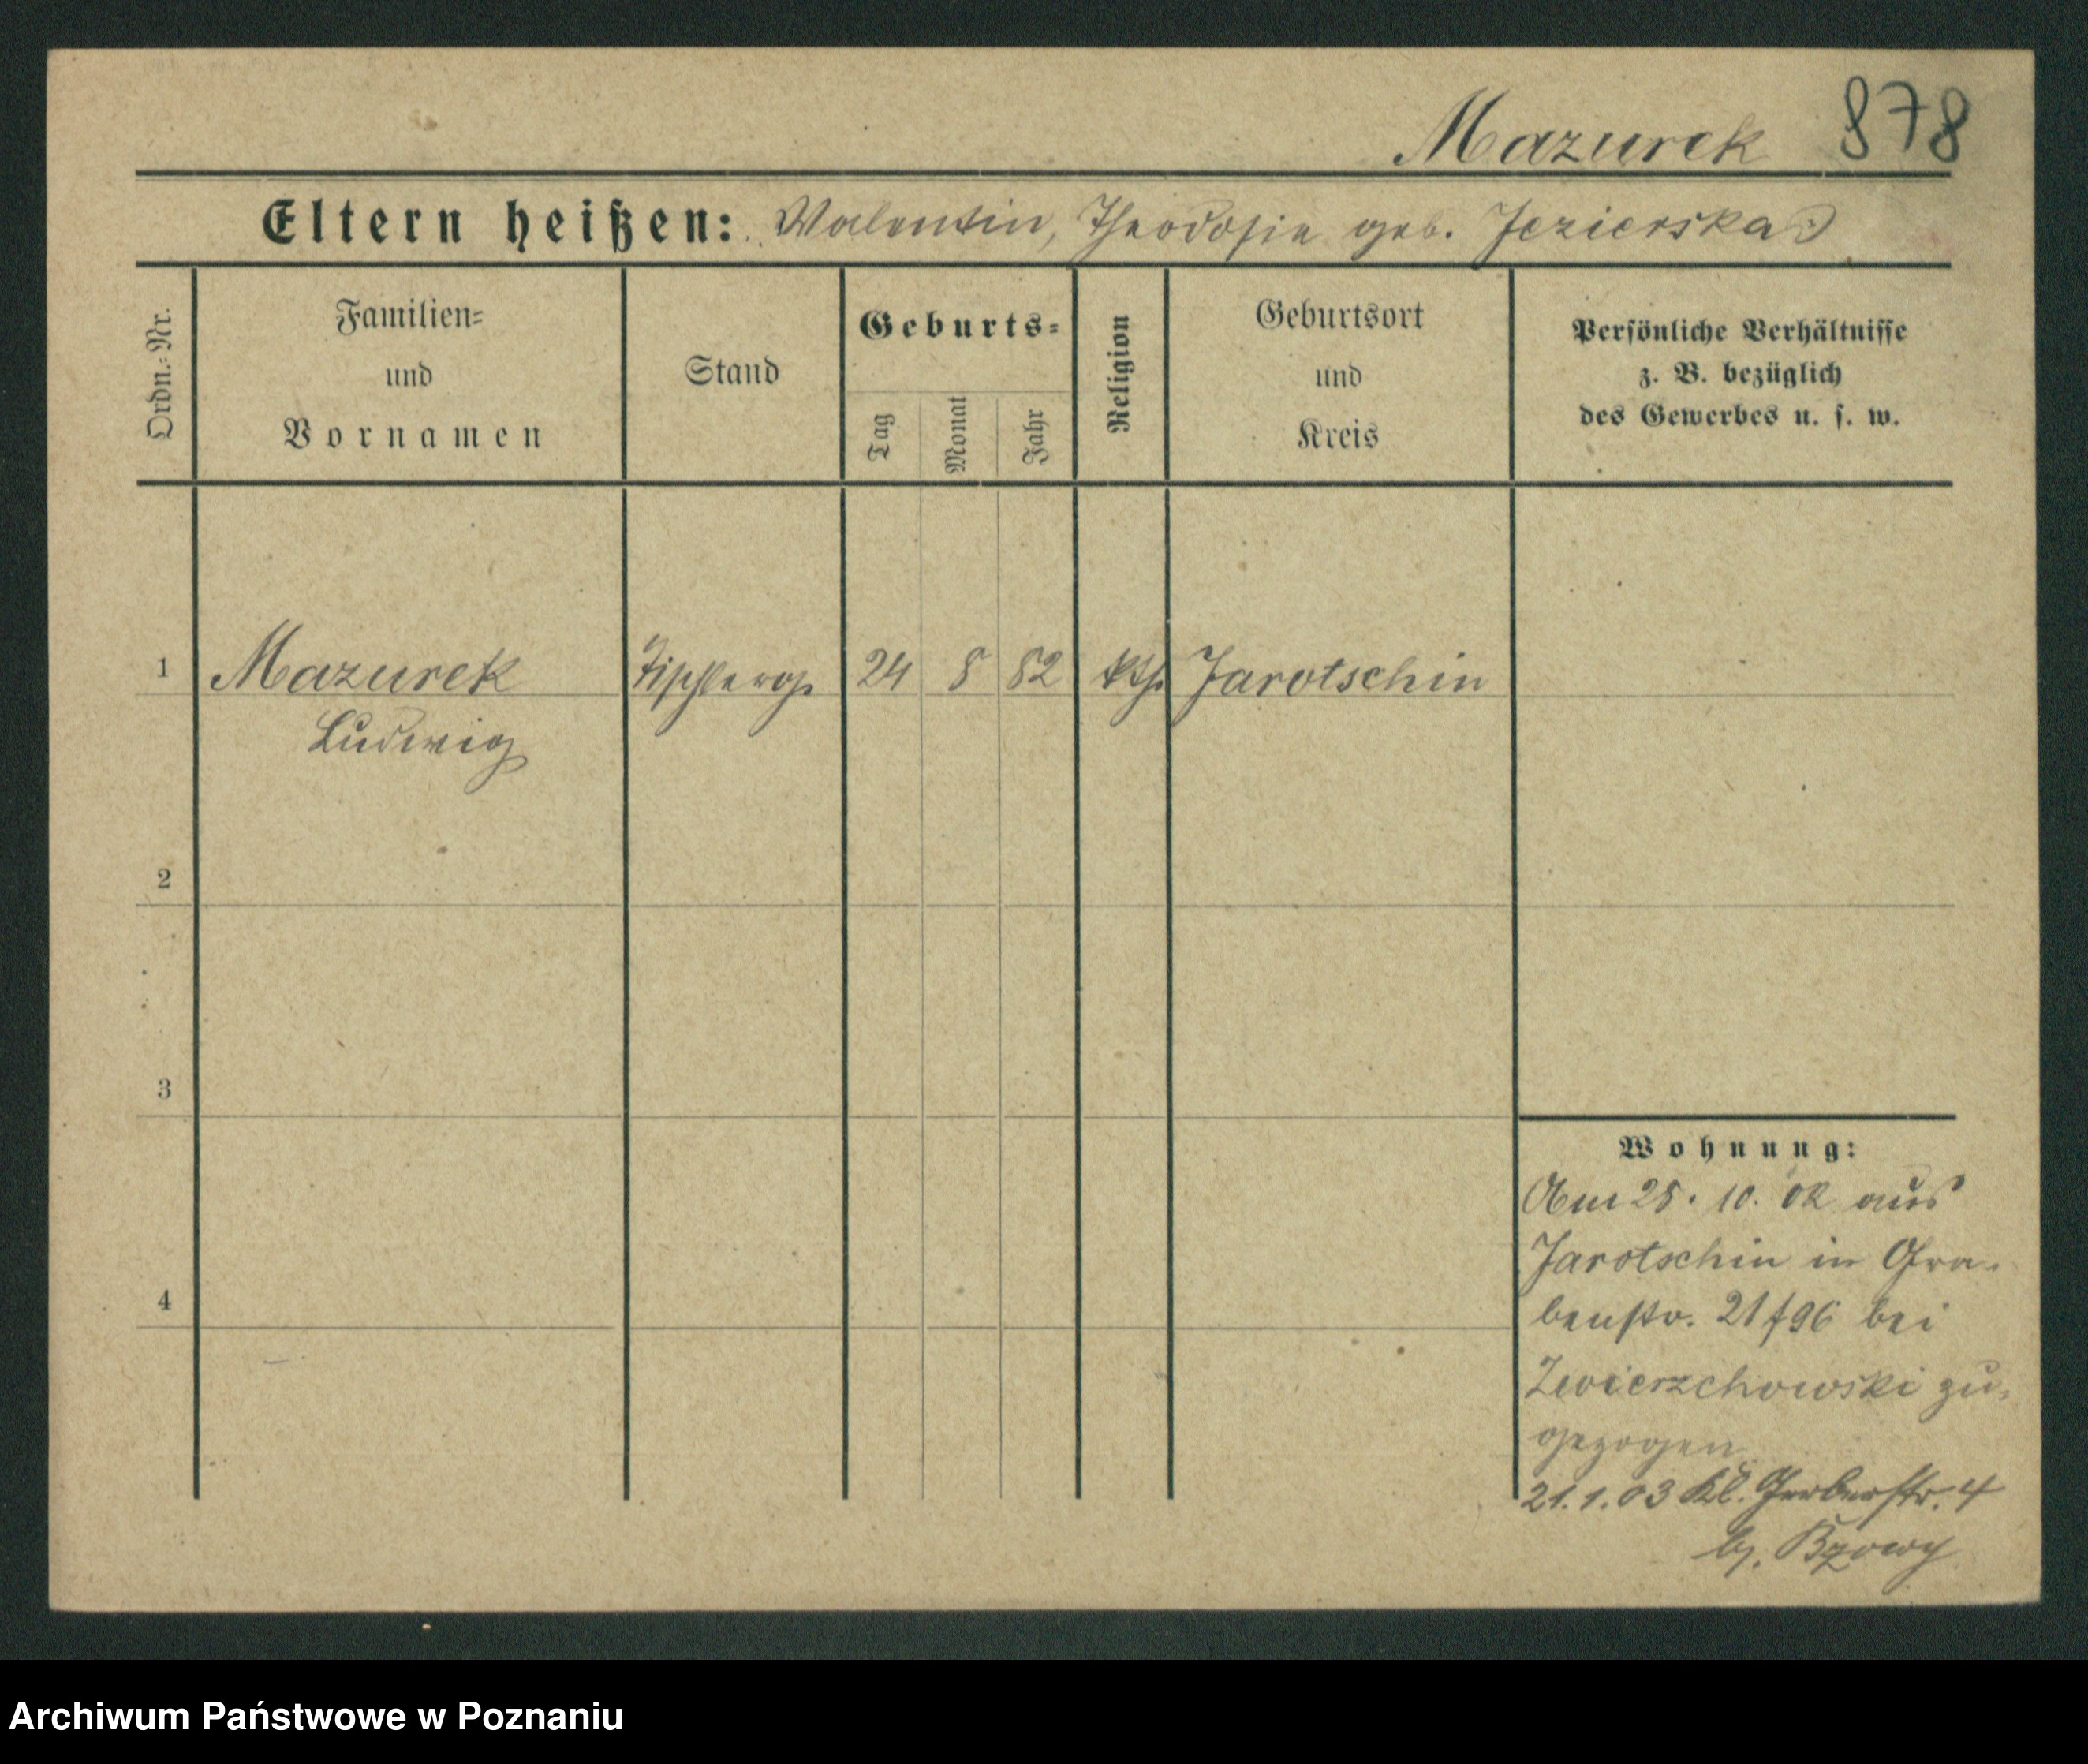 Mazurek 878
Eltern heißen: Valentin, Theodosie geb. Jezierska
Ordn.-Nr.
Familien-
und
Vornamen
Stand
Geburts-
Tag
Monat
Jahr
Religion
Geburtsort
und
Kreis
Persönliche Verhältnisse
z. B. bezüglich
des Gewerbes u. s. w.
1 Mazurek Tischlerg. 24 8 82 kth. Jarotschin
Ludwig
2
3
4
Wohnung:
Am 25. 10. 02 aus
Jarotschin in Gra-
benstr. 21/96 bei
Zwierzchowski zu-
gezogen
21.1.03 Kl. Gerberstr. 4
b. Bzowy
Archiwum Państwowe w Poznaniu